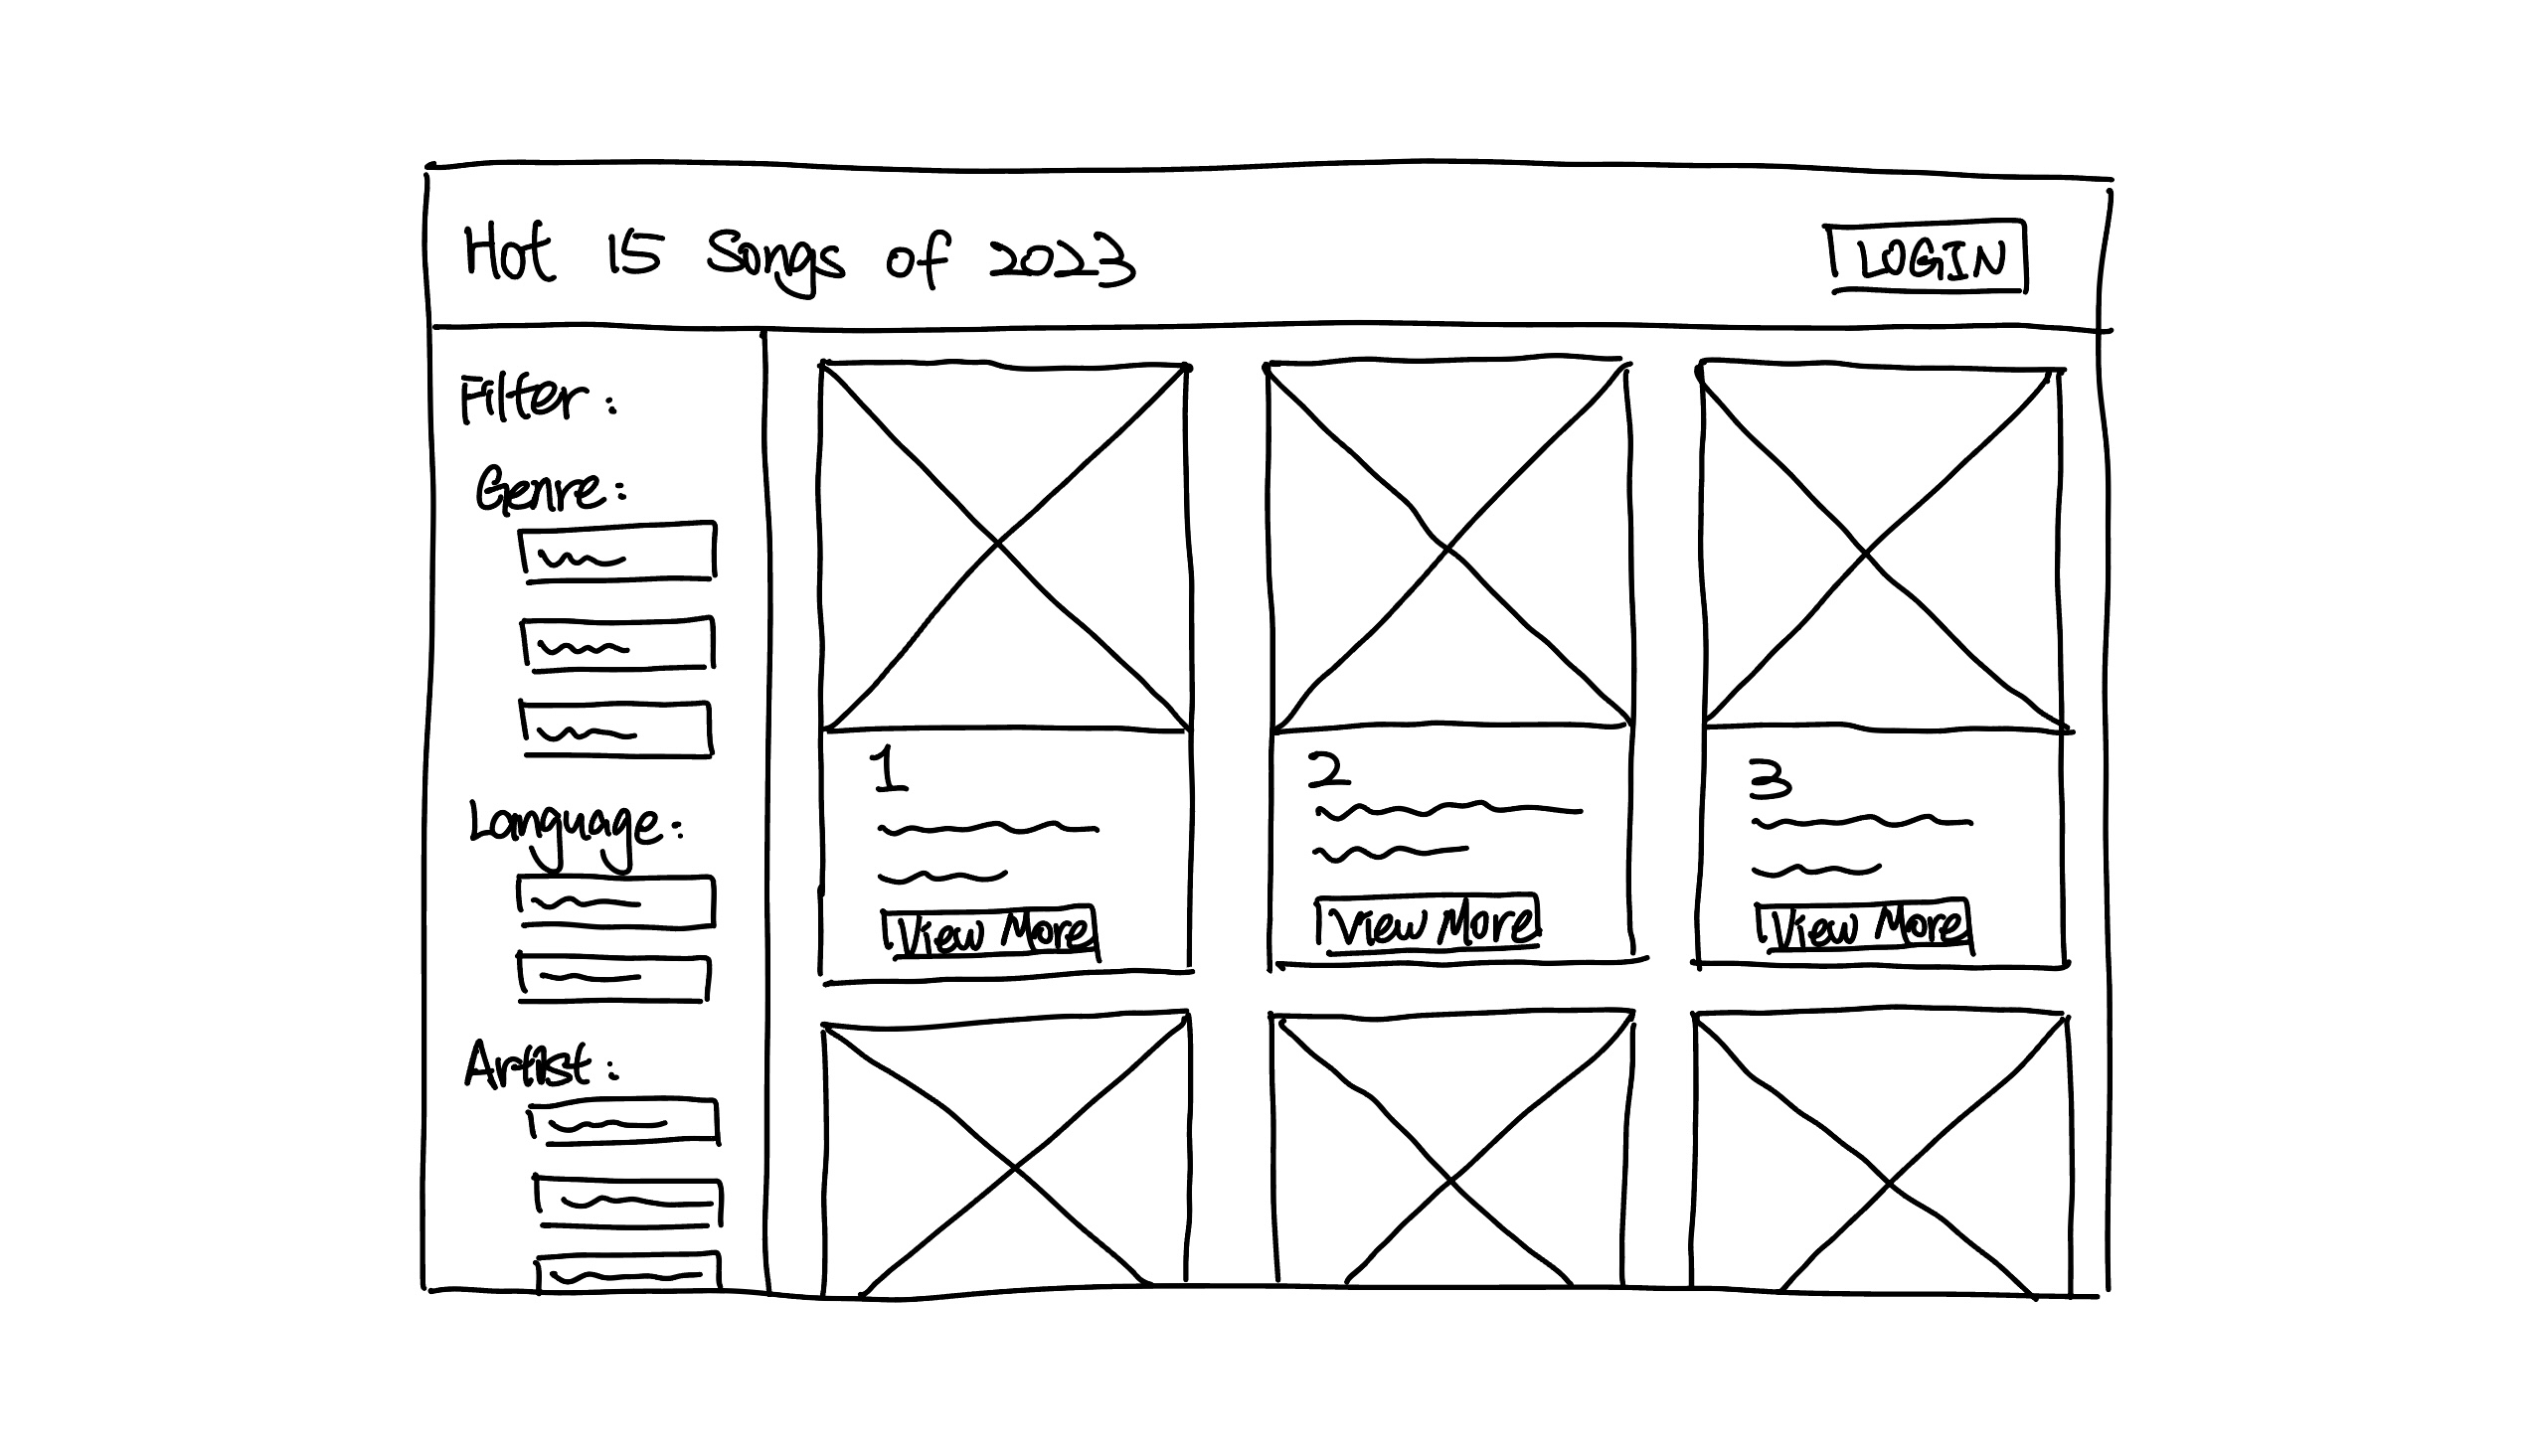 Hot 15 Songs of 2023
LOGIN
Filter:
Genre:
Language:
Artist:
1
View More
2
View More
3
View More